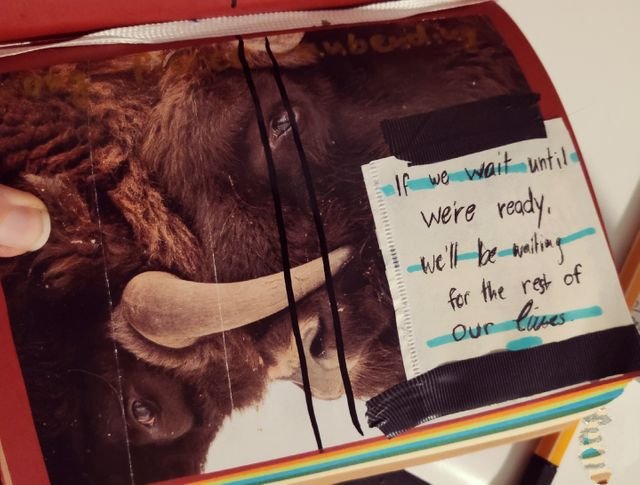 unbending
If we wait until
we're ready,
we'll be waiting
for the rest of
our lives